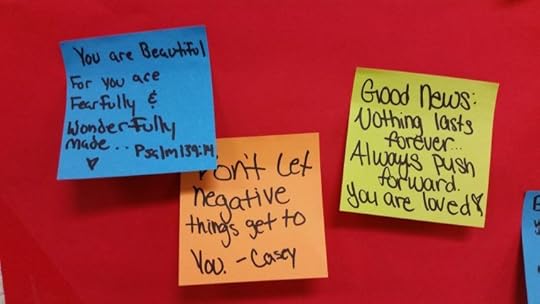 You are Beautiful
For you are
Fearfully &
Wonderfully
made... Psalm 139:14
Don't Let
negative
things get to
You. - Casey
Good News:
Nothing lasts
forever...
Always push
forward.
You are loved